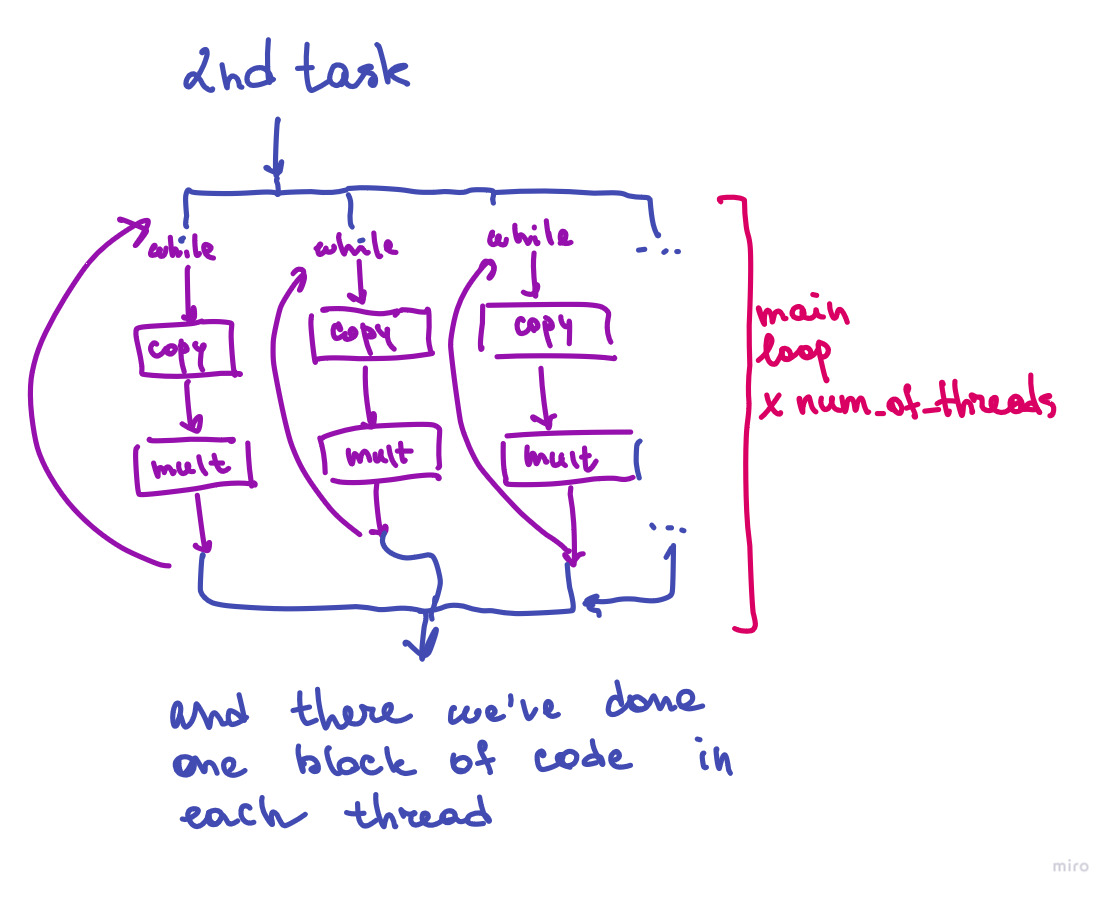 2nd task
while while while
...
copy copy copy
mult mult mult
...
main
loop
x num_of_threads
and there we've done
one block of code in
each thread
miro